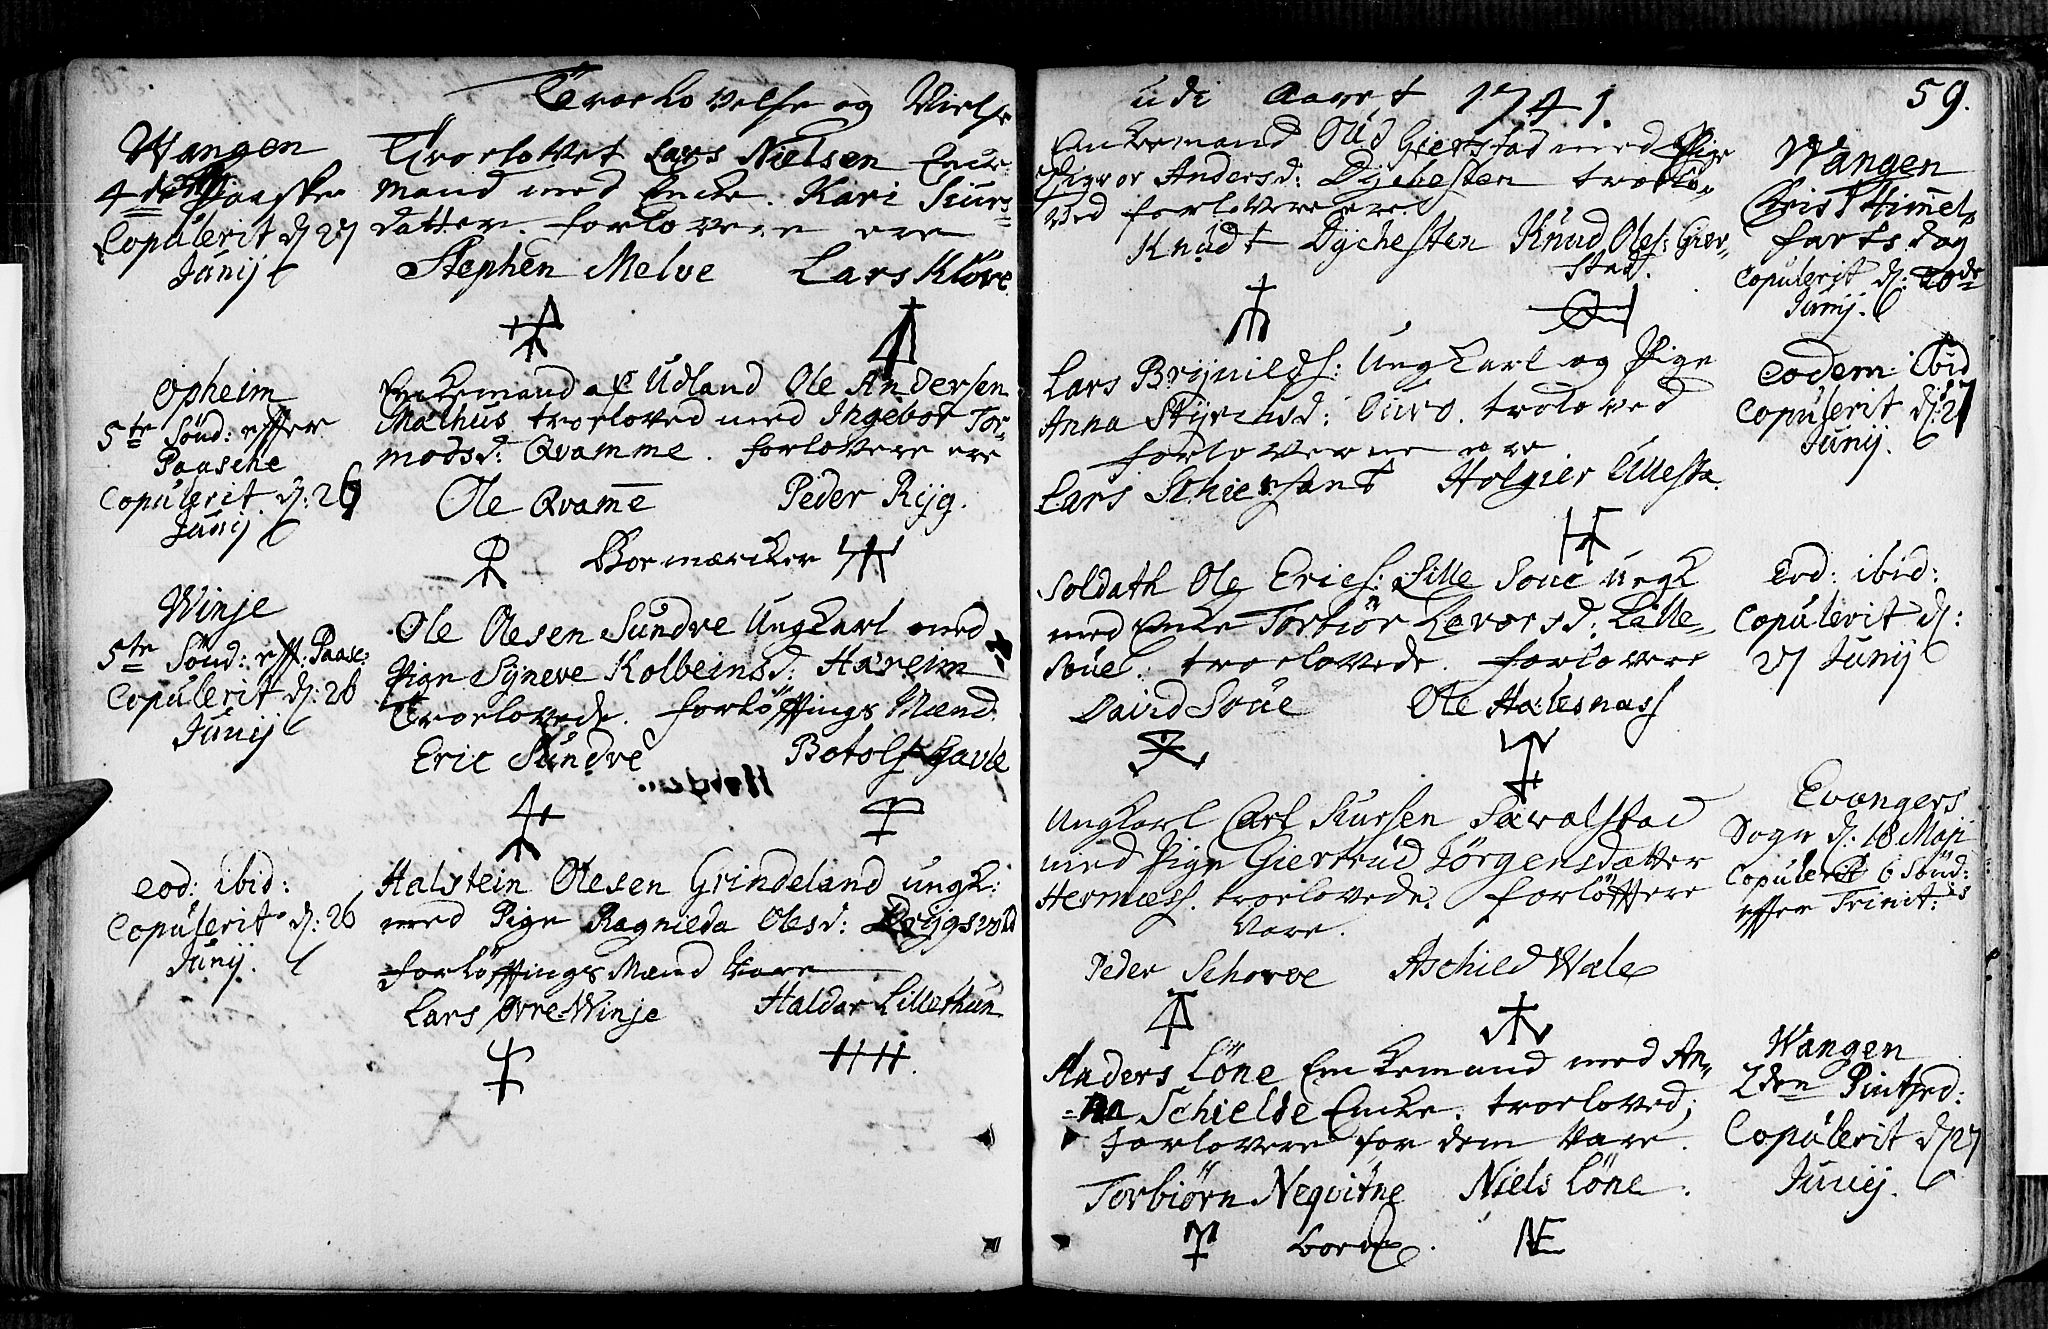 Troelovelse og Vielse
Wangen
4de Paaske
Copulerit d: 27
Junij
Troelovet Lars Nielsen Enke-
mand med Encke Kari Siurs-
datter. forlovere ere
Stephen Melve Lars Kløve
Opheim
5te Sønd: effter
Paasche
Copulerit d: 26
Junij
Enckemand af Udland Ole Andersen
Mælhus troeloved med Ingebor Tor-
modsd: Qvamme. forlovere ere
Ole Qvam̄e Peder Rijg.
Boemærcker
Winje
5te Sønd: eff: Paasc:
Copulerit d: 26
Junij
Ole Olesen Sundve Ungkarl med
Pige Syneve Kolbeinsd: Hæreim
Troelovede. forløfftings Mænd
Eric Sundve Botolf Haule
eod: ibid:
Copulerit d: 26
Junij.
Halstein Olesen Grindeland ungk:
med Pige Ragnilda Olesd: Drygsvold
forløfftings Mænd vare
Lars Øvre-Winje Haldor Lillethun
udi Aaret 1741. 59.
Enckemand Oud Gierstad med Pige
Andersd: Dychesten troelo-
ved forlovere ere
Knudt Dychesten Knud Oles: Gier-
stad.
Wangen
Christi Him̄els
farts dag
Copulerit d: 20de
Junij.
Lars Brynilds: Ungkarl og Pige
Anna Styrchsd: troloved
forloverne ere
Lars Schiersant Holgier Ullesta.
eodem: ibid
Copulerit d: 27
Junij.
Soldath Ole Erics: Lille Soue ungk
med Encke Torbiør Levorsd: Lille-
Soue. troelovede. forlovere
David Soue Ole Hælesnass
Eod: ibid:
Copulerit d:
27 Junij
Ungkarl Carl Siursen Særvalstad
med Pige Giertrud Jørgensdatter
Hermæss. troelovede. forløfftere
vare.
Peder Schorve Aschild Wæle
Evangers
Sogn d: 18 Maji
Copulerit 6 Sønd:
effter Trinit:is
Anders Løne Enckemand med An-
=na Schielde Encke. troeloved;
forlovere for dem vare.
Torbiørn Neqvitne Niels Løne.
Wangen
2den Pintzed:
Copulerit d 27
Junij.